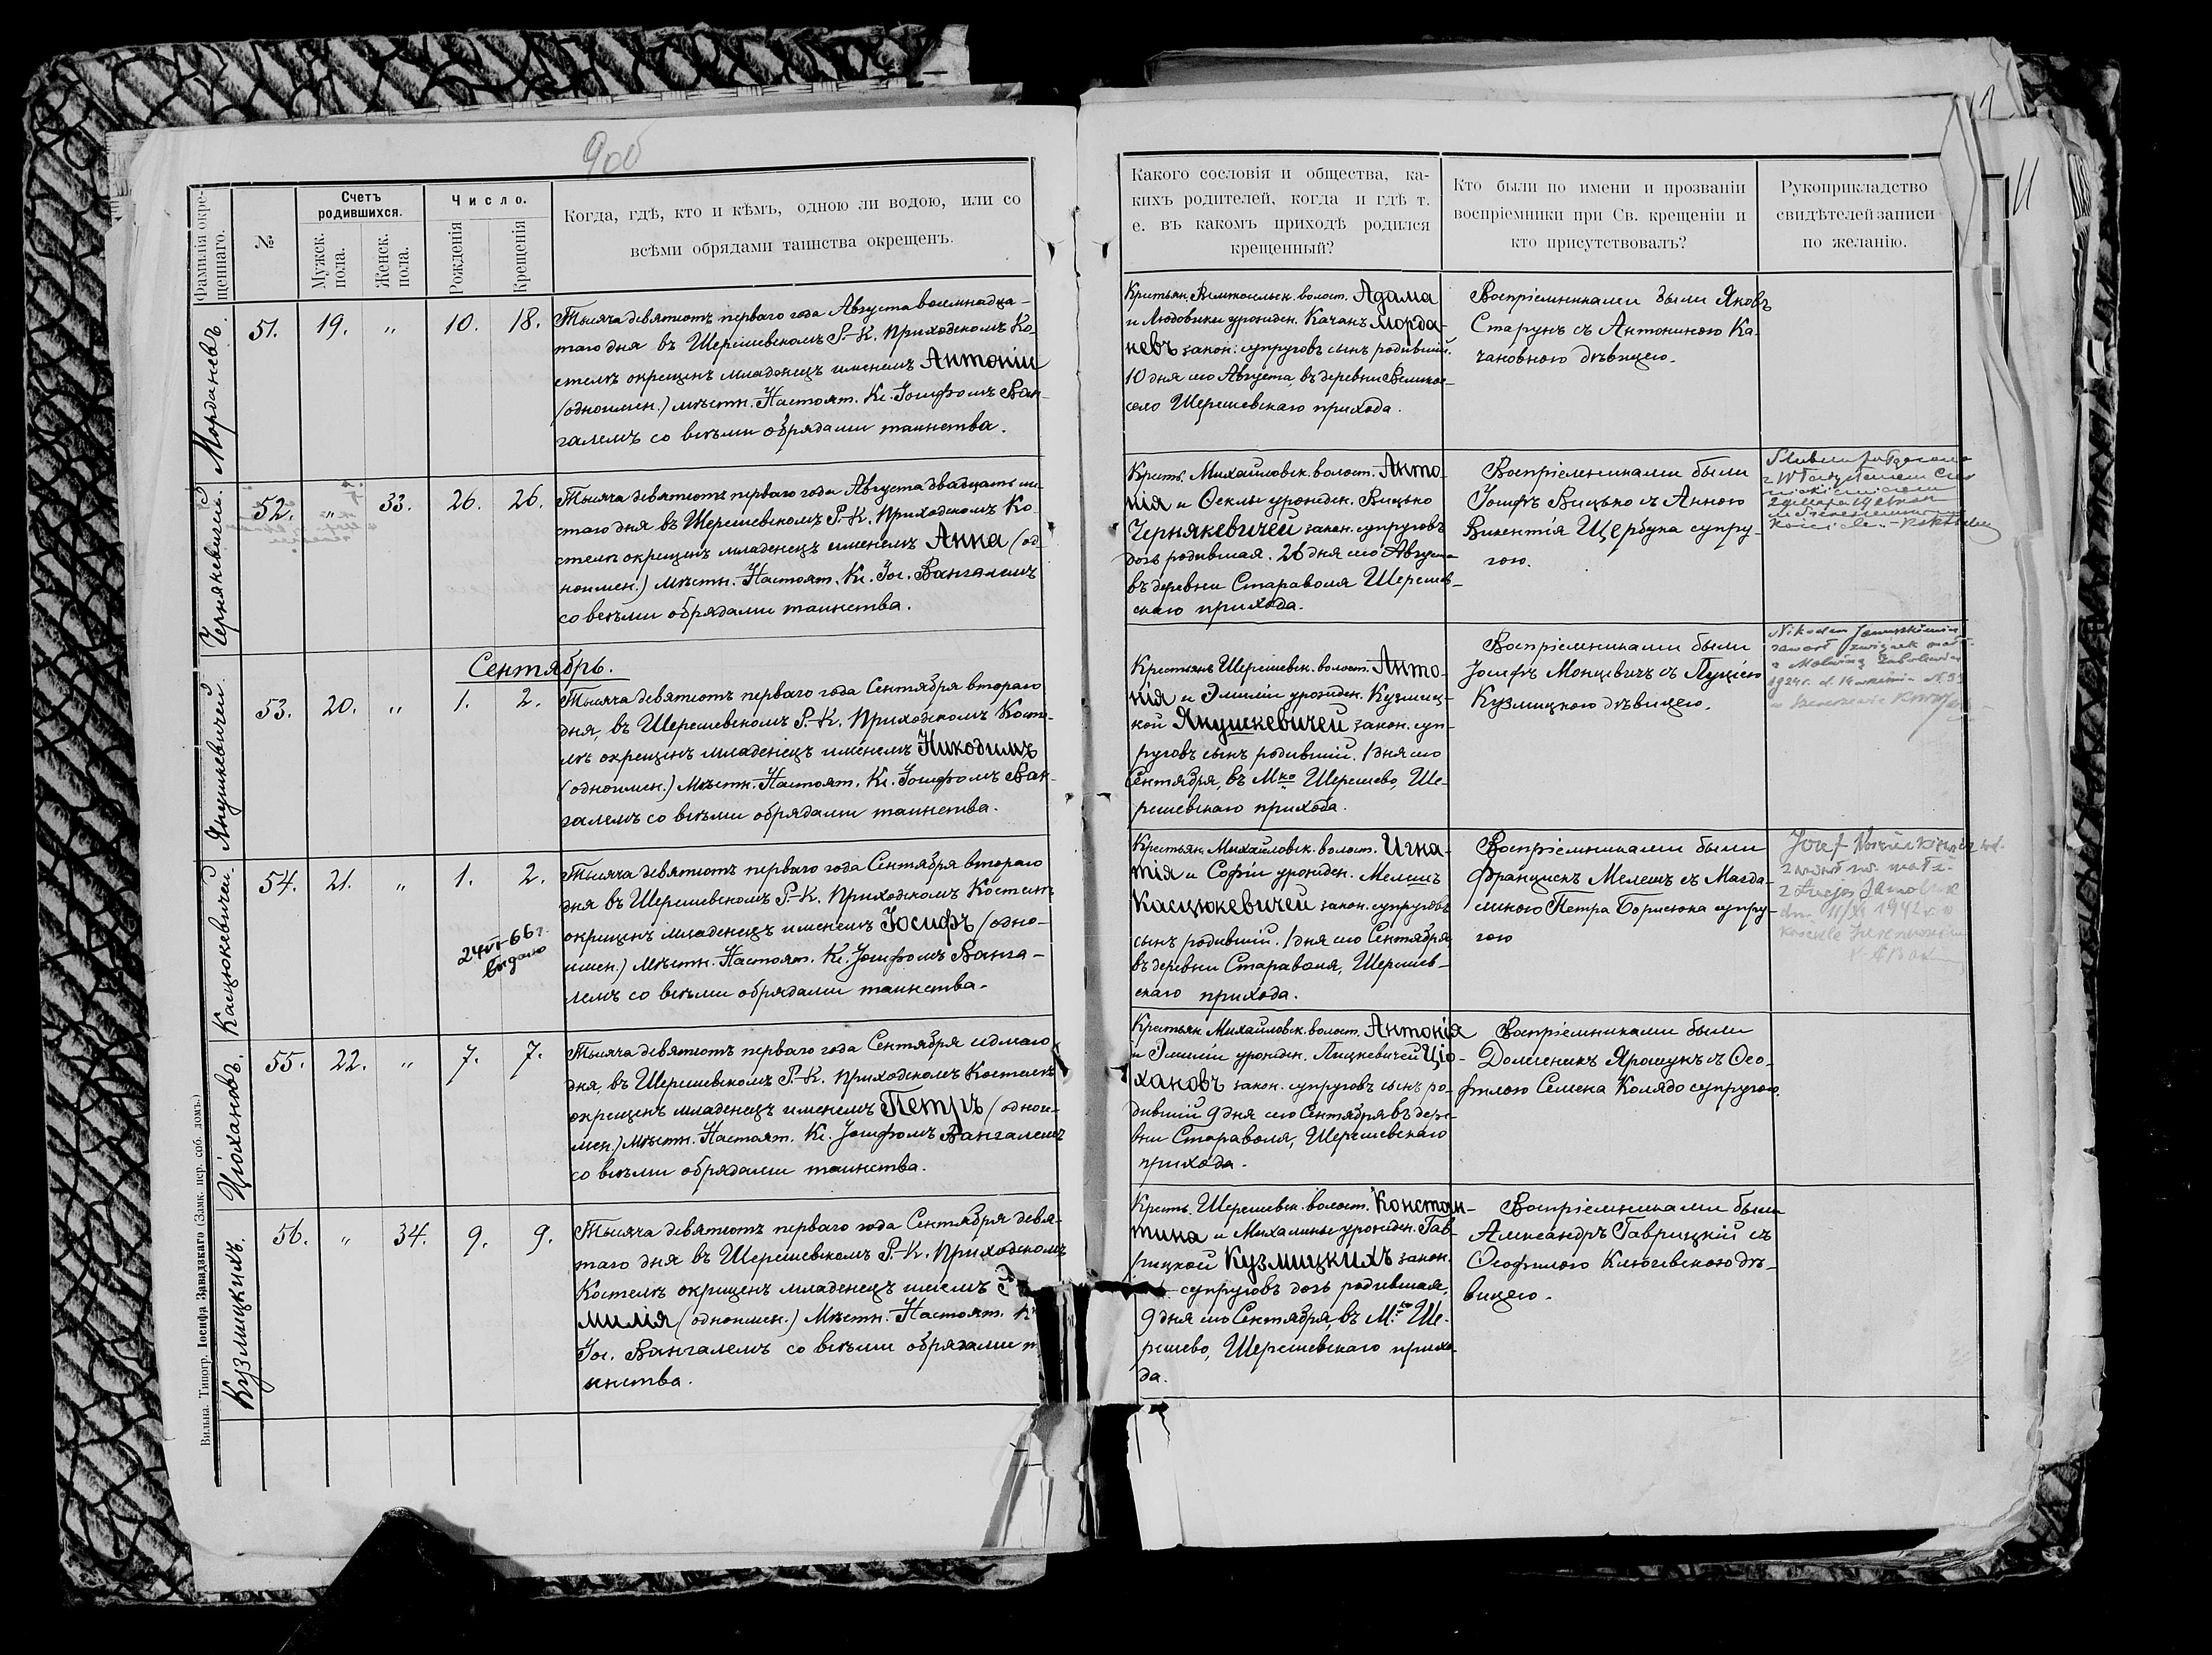 9об
11
Фамилія окре-
щеннаго.
№
Счетъ
родившихся.
Мужск.
пола.
Женск.
пола.
Число.
Рожденія
Крещенія
Когда, гдѣ, кто и кѣмъ, одною ли водою, или со
всѣми обрядами таинства окрещенъ.
Какого сословія и общества, ка-
кихъ родителей, когда и гдѣ т.
е. въ какомъ приходѣ родился
крещенный?
Кто были по имени и прозваніи
воспріемники при Св. крещеніи и
кто присутствовалъ?
Рукоприкладство
свидѣтелей записи
по желанію.
Морданевъ.
51. 19. " 10. 18.
Тысяча девятьсотъ перваго года Августа восемнадца-
таго дня въ Шерешевскомъ Р.-К. Приходскомъ Ко-
стелѣ окрещенъ младенецъ именемъ Антоній
(одноимен.) мѣстн. Настоят. Кс. Іосифомъ Ван-
галемъ со всѣми обрядами таинства.
Крестьян. волост. Адама
и Людовики урожден. Качанъ Морда-
невъ закон. супруговъ сынъ родивший.
10 дня сего Августа, въ деревни Великое-
село Шерешевскаго прихода.
Воспріемниками были Яковъ
Старунъ съ Антониною Ка-
чановною дѣвицею.
Чернякевичей
52. " 33. 26. 26.
Тысяча девятьсотъ перваго года Августа двадцать ше-
стаго дня въ Шерешевскомъ Р.-К. Приходскомъ Ко-
стелѣ окрещенъ младенецъ именемъ Анна (од-
ноимен.) Мѣстн. Настоят. Кс. Іос. Вангалемъ
со всѣми обрядами таинства.
Крестъ. Михайловск. волост. Анто-
нія и Феклы урожден. Вицько
Чернякевичей закон. супруговъ
дочь родившая. 26 дня сего Августа
въ деревни Стараволя Шерешев-
скаго прихода.
Воспріемниками были
Іосифъ Вицько съ Анною
Викентія Щербука супру-
гою.
Сентябрь.
Янушкевичей.
53. 20. " 1. 2.
Тысяча девятьсотъ перваго года Сентября втораго
дня, въ Шерешевскомъ Р.-К. Приходскомъ Косте-
лѣ окрещенъ младенецъ именемъ Никодимъ
(одноимен.) Мѣстн. Настоят. Кс. Іосифомъ Ван-
галемъ со всѣми обрядами таинства.
Крестьянъ Шерешевск. волост. Анто-
нія и Эмиліи урожден. Кузмиц-
кой Янушкевичей закон. суп-
руговъ сынъ родивший. 1 дня сего
Сентября, въ Мко Шерешево, Ше-
решевскаго прихода.
Воспріемниками были
Іосифъ Монцевичъ съ Луціею
Кузмицкою дѣвицею.
Nikodem Januszkiewicz
zawarł związek mał.
z Malwiną
1924 r. d. 14
Касцюкевичей
54. 21. " 1. 2.
24 VI-66 г.
выдано
Тысяча девятьсотъ перваго года Сентября втораго
дня въ Шерешевскомъ Р.-К. Приходскомъ Костелѣ
окрещенъ младенецъ именемъ Іосифъ (одно-
имен.) Мѣстн. Настоят. Кс. Іосифомъ Ванга-
лемъ со всѣми обрядами таинства.
Крестьян. Михайловск. волост. Игна-
тія и Софіи урожден. Мелешъ
Касцюкевичей закон. супруговъ
сынъ родивший. 1 дня сего Сентября,
въ деревни Стараволя, Шерешев-
скаго прихода.
Воспріемниками были
Францискъ Мелешъ съ Магда-
леною Петра Борисюка супру-
гою
Józef
zawarł zw. małż.
z Łucją
dn. 11/XI 1942 r. w
kościele
Ціохановъ.
55. 22. " 7. 7.
Тысяча девятьсотъ перваго года Сентября седмаго
дня, въ Шерешевскомъ Р.-К. Приходскомъ Костелѣ
окрещенъ младенецъ именемъ Петръ (однои-
мен.) Мѣстн. Настоят. Кс. Іосифомъ Вангалемъ
со всѣми обрядами таинства.
Крестьян. Михайловск. волост. Антонія
и Эмиліи урожден. Лицкевичей Ціо-
хановъ закон. супруговъ сынъ ро-
дивший 9 дня сего Сентября въ дере-
вни Стараволя, Шерешевскаго
прихода.
Воспріемниками были
Доминикъ Ярошукъ съ Фео-
филою Семена Колядо супругою.
Кузмицкихъ.
56. " 34. 9. 9.
Тысяча девятьсотъ перваго года Сентября девя-
таго дня въ Шерешевскомъ Р.-К. Приходскомъ
Костелѣ окрещенъ младенецъ имемъ Э
милія (одноимен.) Мѣстн. Настоят. К
Іос. Вангалемъ со всѣми обрядами т
инства.
Крестъ. Шерешевск. волост. Констан-
тина и Михалины урожден. Гав-
рицкой Кузмицкихъ закон.
супруговъ дочь родившая,
9 дня сего Сентября, въ М.ко Ше-
решево, Шерешевскаго прихо-
да.
Воспріемниками были
Александръ Гаврицкій съ
Феофилою Ключевскою дѣ-
вицею.
Вильна. Типогр. Іосифа Завадзкаго (Замк. пер. соб. домъ.)